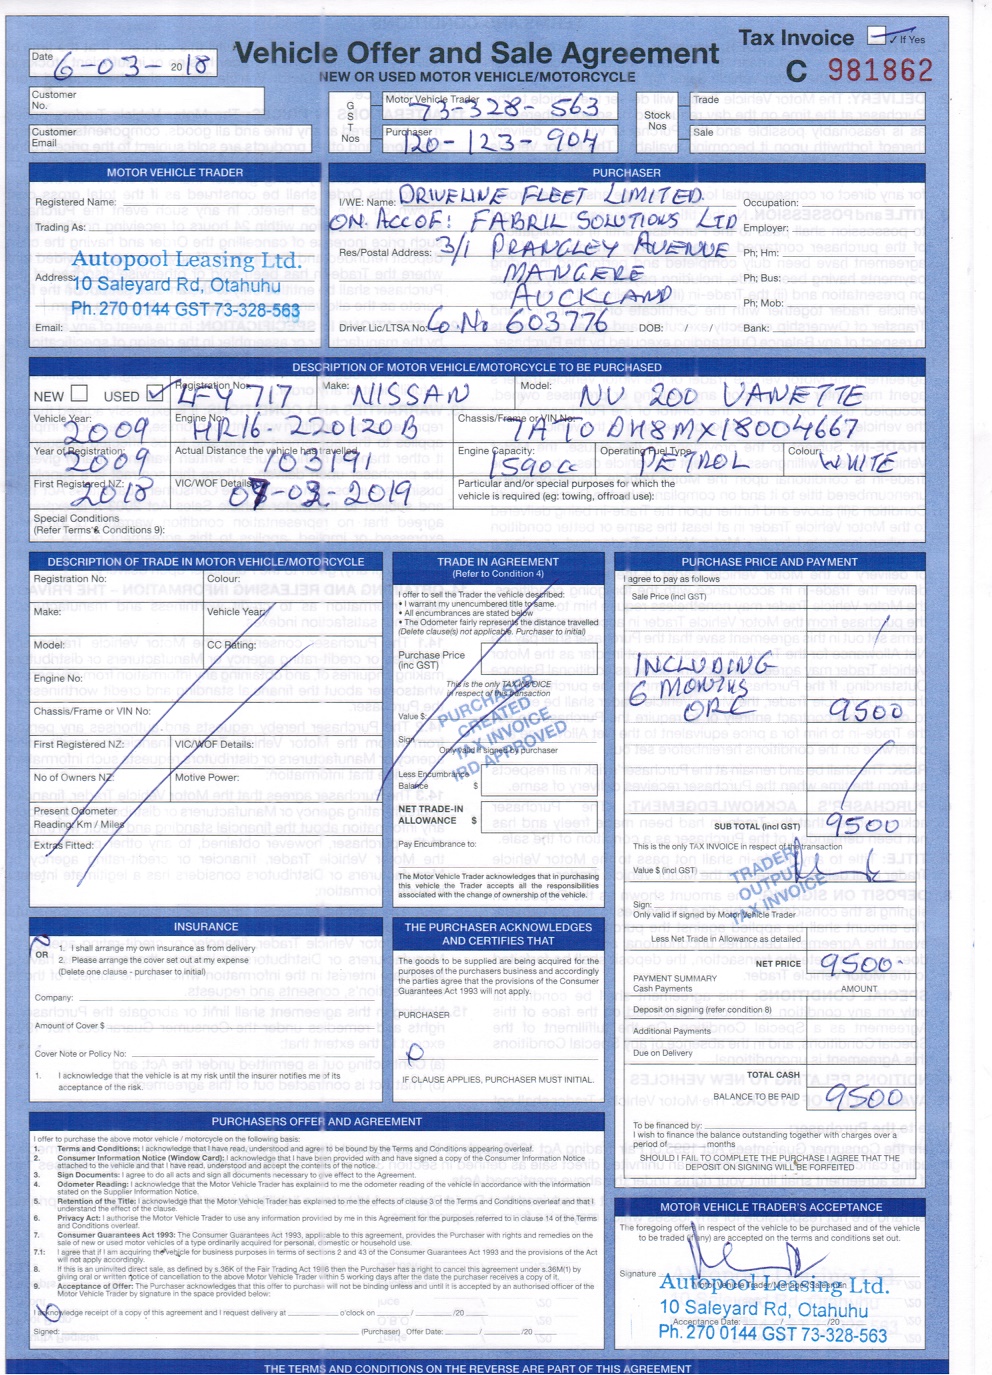 Date 6-03-2018
Vehicle Offer and Sale Agreement
NEW OR USED MOTOR VEHICLE/MOTORCYCLE
Tax Invoice ✓ If Yes
C 981862
Customer No.
Customer Email
GST Nos
Motor Vehicle Trader 73-328-563
Purchaser 120-123-904
Stock Nos
Trade
Sale
MOTOR VEHICLE TRADER
Registered Name:
Trading As:
Autopool Leasing Ltd.
Address: 10 Saleyard Rd, Otahuhu
Ph. 270 0144 GST 73-328-563
Email:
PURCHASER
I/WE: Name: DRIVELINE FLEET LIMITED
ON ACC OF: FABRIL SOLUTIONS LTD
Res/Postal Address: 3/1 PRANGLEY AVENUE
MANGERE
AUCKLAND
Driver Lic/LTSA No: Co. No 603776 DOB: / /
Occupation:
Employer:
Ph; Hm:
Ph; Bus:
Ph; Mob:
Bank:
DESCRIPTION OF MOTOR VEHICLE/MOTORCYCLE TO BE PURCHASED
NEW USED ✓ Registration No: LFY 717 Make: NISSAN Model: NV 200 VANETTE
Vehicle Year: 2009 Engine No: HR16-220120B Chassis/Frame or VIN No: 7AT0DH8MX18004667
Year of Registration: 2009 Actual Distance the vehicle has travelled 103191 Engine Capacity: 1590cc Operating Fuel Type: PETROL Colour: WHITE
First Registered NZ: 2018 VIC/WOF Details: 07-03-2019 Particular and/or special purposes for which the
vehicle is required (eg: towing, offroad use):
Special Conditions
(Refer Terms & Conditions 9):
DESCRIPTION OF TRADE IN MOTOR VEHICLE/MOTORCYCLE
Registration No: Colour:
Make: Vehicle Year:
Model: CC Rating:
Engine No:
Chassis/Frame or VIN No:
First Registered NZ: VIC/WOF Details:
No of Owners NZ: Motive Power:
Present Odometer
Reading: Km / Miles
Extras Fitted:
TRADE IN AGREEMENT
(Refer to Condition 4)
I offer to sell the Trader the vehicle described:
• I warrant my unencumbered title to same.
• All encumbrances are stated below
• The Odometer fairly represents the distance travelled
(Delete clause(s) not applicable. Purchaser to initial)
Purchase Price
(inc GST)
This is the only TAX INVOICE
in respect of this transaction
Value $
Sign
Only valid if signed by purchaser
PURCHASER
CREATED
TAX INVOICE
IRD APPROVED
Less Encumbrance
Balance $
NET TRADE-IN
ALLOWANCE $
Pay Encumbrance to:
The Motor Vehicle Trader acknowledges that in purchasing
this vehicle the Trader accepts all the responsibilities
associated with the change of ownership of the vehicle.
PURCHASE PRICE AND PAYMENT
I agree to pay as follows
Sale Price (incl GST)
INCLUDING
6 MONTHS
ORC 9500
SUB TOTAL (incl GST) 9500
This is the only TAX INVOICE in respect of the transaction
Value $ (incl GST)
TRADER
OUTPUT
TAX INVOICE
Sign:
Only valid if signed by Motor Vehicle Trader
Less Net Trade in Allowance as detailed
NET PRICE 9500-
PAYMENT SUMMARY
Cash Payments AMOUNT
Deposit on signing (refer condition 8)
Additional Payments
Due on Delivery
TOTAL CASH
BALANCE TO BE PAID 9500
To be financed by:
I wish to finance the balance outstanding together with charges over a
period of months
SHOULD I FAIL TO COMPLETE THE PURCHASE I AGREE THAT THE
DEPOSIT ON SIGNING WILL BE FORFEITED
INSURANCE
OR
1. I shall arrange my own insurance as from delivery
2. Please arrange the cover set out at my expense
(Delete one clause - purchaser to initial)
Company:
Amount of Cover $
Cover Note or Policy No:
1. I acknowledge the vehicle is at my risk until the insurer notifies me of its
acceptance of the risk.
THE PURCHASER ACKNOWLEDGES
AND CERTIFIES THAT
The goods to be supplied are being acquired for the
purposes of the purchasers business and accordingly
the parties agree that the provisions of the Consumer
Guarantees Act 1993 will not apply.
PURCHASER
IF CLAUSE APPLIES, PURCHASER MUST INITIAL.
PURCHASERS OFFER AND AGREEMENT
I offer to purchase the above motor vehicle / motorcycle on the following basis:
1. Terms and Conditions: I acknowledge that I have read, understood and agree to be bound by the Terms and Conditions appearing overleaf.
2. Consumer Information Notice (Window Card): I acknowledge that I have been provided with and have signed a copy of the Consumer Information Notice
attached to the vehicle and that I have read, understood and accept the contents of the notice.
3. Sign Documents: I agree to do all acts and sign all documents necessary to give effect to the Agreement.
4. Odometer Reading: I acknowledge that the Motor Vehicle Trader has explained to me the odometer reading of the vehicle in accordance with the information
stated on the Supplier Information Notice.
5. Retention of the Title: I acknowledge that the Motor Vehicle Trader has explained to me the effects of clause 3 of the Terms and Conditions overleaf and that I
understand the effect of the clause.
6. Privacy Act: I authorise the Motor Vehicle Trader to use any information provided by me in this Agreement for the purposes referred to in clause 14 of the Terms
and Conditions overleaf.
7. Consumer Guarantees Act 1993: The Consumer Guarantees Act 1993, applicable to this agreement, provides the Purchaser with rights and remedies on the
sale of new or used motor vehicles of a type ordinarily acquired for personal, domestic or household use.
7.1: I agree that if I am acquiring the vehicle for business purposes in terms of sections 2 and 43 of the Consumer Guarantees Act 1993 and the provisions of the Act
will not apply accordingly.
8. If this is an uninvited direct sale, as defined by s.36K of the Fair Trading Act 1986 then the Purchaser has a right to cancel this agreement under s.36M(1) by
giving oral or written notice of cancellation to the above Motor Vehicle Trader within 5 working days after the date the purchaser receives a copy of it.
9. Acceptance of Offer: The Purchaser acknowledges that this offer to purchase will not be binding unless and until it is accepted by an authorised officer of the
Motor Vehicle Trader by signature in the space provided below:
I acknowledge receipt of a copy of this agreement and I request delivery at o'clock on / /20
Signed: (Purchaser) Offer Date: / /20
MOTOR VEHICLE TRADER'S ACCEPTANCE
The foregoing offers in respect of the vehicle to be purchased and of the vehicle
to be traded (if any) are accepted on the terms and conditions set out.
Signature
Autopool Leasing Ltd.
10 Saleyard Rd, Otahuhu
Acceptance Date: / /20
Ph. 270 0144 GST 73-328-563
THE TERMS AND CONDITIONS ON THE REVERSE ARE PART OF THIS AGREEMENT